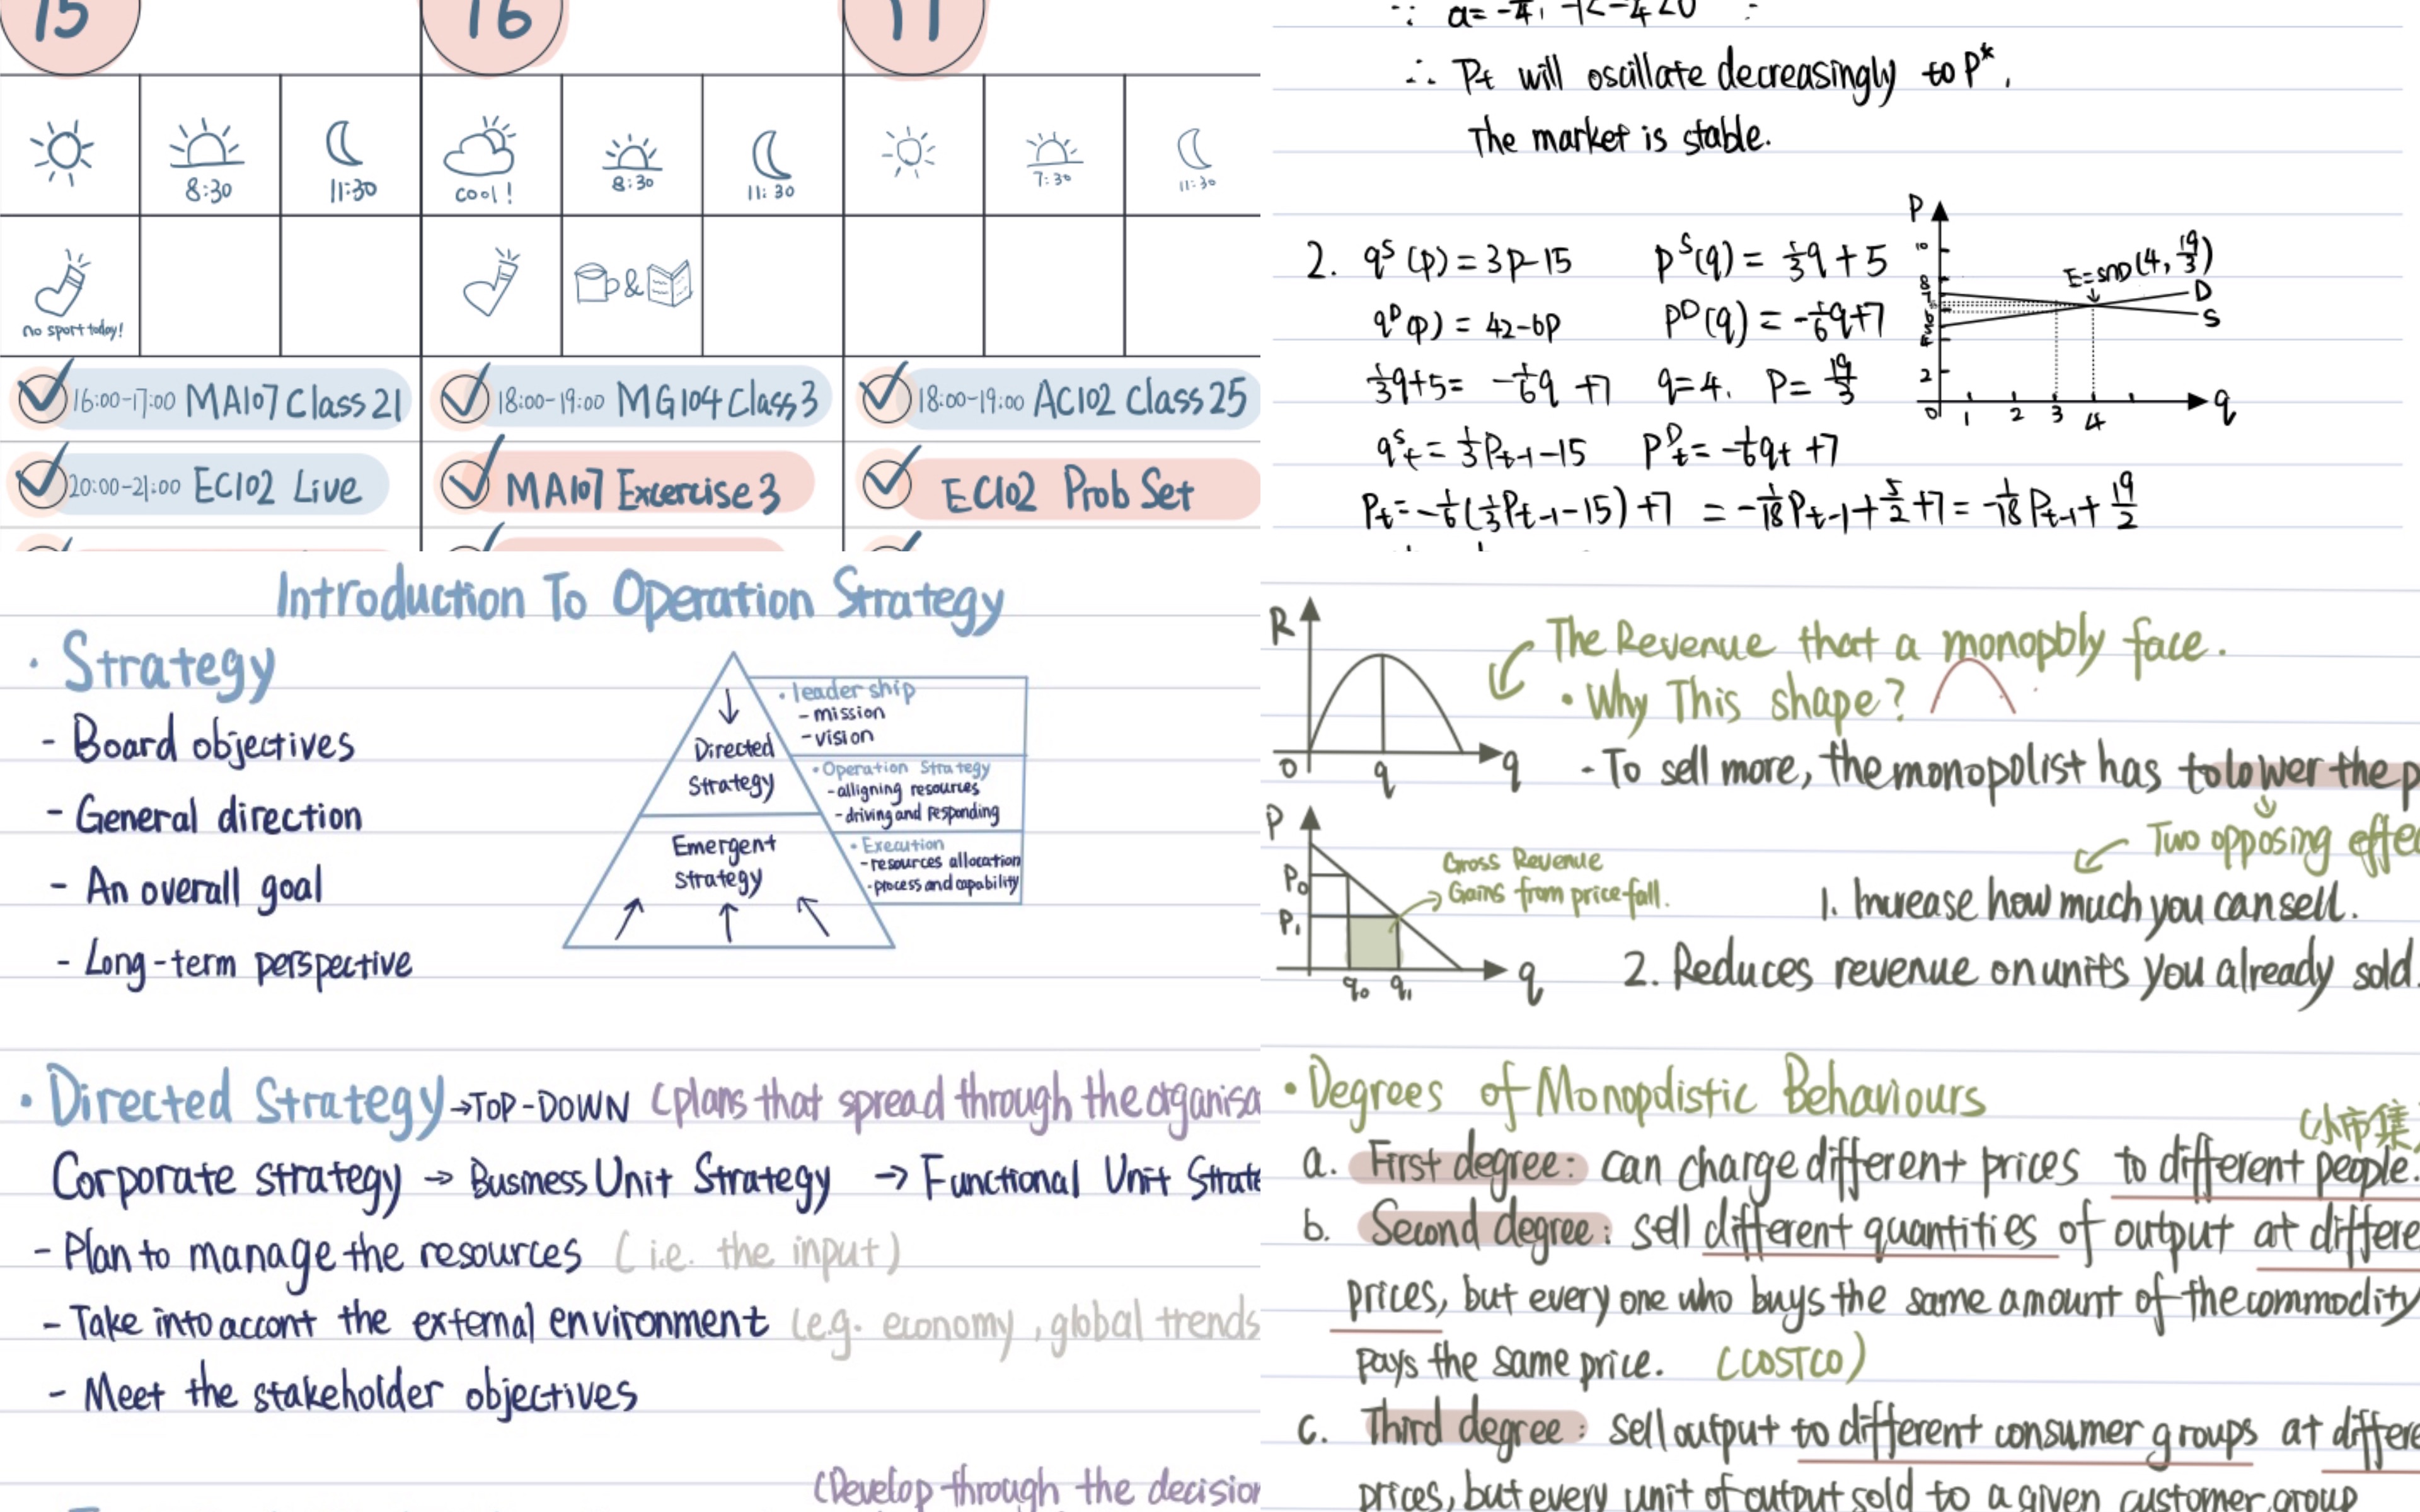 15
16
17
8:30
11:30
cool!
8:30
11:30
7:30
11:30
no sport today!
&
16:00-17:00 MA107 Class 21
18:00-19:00 MG104 Class 3
18:00-19:00 AC102 Class 25
20:00-21:00 EC102 Live
MA107 Excercise 3
EC102 Prob Set
∴ Pt will oscillate decreasingly to P*.
The market is stable.
2. qˢ(p) = 3p-15 pˢ(q) = 1/3q + 5
qᴰ(p) = 42-6p pᴰ(q) = -1/6q+7
1/3q+5 = -1/6q +7 q=4. P= 19/3
qˢt = 1/3Pt-1-15 Pᴰt = -1/6qt +7
Pt = -1/6(1/3Pt-1-15)+7 = -1/18Pt-1+5/2+7 = -1/18Pt-1+19/2
P
10
8
2
0 1 2 3 4
q
E=SnD(4, 19/3)
D
S
Introduction To Operation Strategy
· Strategy
- Board objectives
- General direction
- An overall goal
- Long-term perspective
Directed
Strategy
Emergent
Strategy
· leader ship
- mission
- vision
· Operation Strategy
- alligning resources
- driving and responding
· Execution
- resources allocation
- process and capability
· Directed Strategy →TOP-DOWN (plans that spread through the organisa
Corporate strategy → Business Unit Strategy → Functional Unit Strate
- Plan to manage the resources (i.e. the input)
- Take into accont the external environment (e.g. economy, global trends
- Meet the stakeholder objectives
(Develop through the decision
R
0 q q
The Revenue that a monopoly face.
· Why This shape?
- To sell more, the monopolist has to lower the p
Two opposing effec
P
P0
P1
q0 q1 q
Gross Revenue
Gains from price fall.
1. Increase how much you can sell.
2. Reduces revenue on units you already sold.
· Degrees of Monopolistic Behaviours
(小市集)
a. First degree: can charge different prices to different people.
b. Second degree: sell different quantities of output at differe
prices, but every one who buys the same amount of the commodity
pays the same price. (COSTCO)
c. Third degree: sell output to different consumer groups at differe
prices, but every unit of output sold to a given customer group